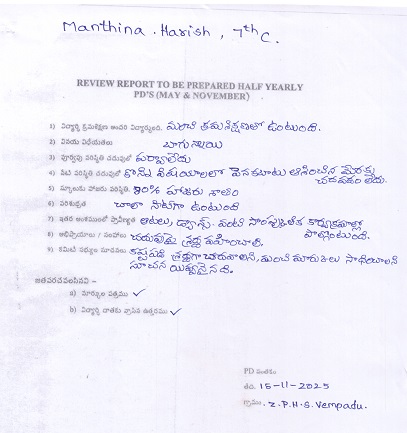 Manthina . Harish, 7th C.
REVIEW REPORT TO BE PREPARED HALF YEARLY
PD'S (MAY & NOVEMBER)
1) విద్యార్థి క్రమశిక్షణ అందరి విద్యార్థులతో. మంచి క్రమశిక్షణతో ఉంటుంది.
2) వినయ విధేయతలు బాగున్నాయి
3) పూర్వపు పరిస్థితి చదువులో పర్వాలేదు
4) నేటి పరిస్థితి చదువులో కొన్ని విషయాలలో వెనకబాటు ఆశించిన మేరకు
చదవడం లేదు.
5) స్కూలుకు హాజరు పరిస్థితి. 90% హాజరు శాతం
6) పరిశుభ్రత చాలా నీట్‌గా ఉంటుంది
7) ఇతర అంశములలో ప్రావీణ్యత ఆటలు, డ్యాన్స్ వంటి సాంస్కృతిక కార్యక్రమాల్లో
పాల్గొంటుంది.
8) అభిప్రాయాలు / సలహాలు చదువుపై శ్రద్ధ వహించాలి.
9) కమిటీ సభ్యుల సూచనలు కష్టపడి శ్రద్ధగా చదవాలని, మంచి మార్కులు సాధించాలని
సూచన ఇవ్వనైనది.
జతపరచవలసినవి -
a) మార్కుల పత్రము ✓
b) విద్యార్థి దాతకు వ్రాసిన ఉత్తరము ✓
PD సంతకం
తేది. 15-11-2025
గ్రామం. Z.P.H.S. Vempadu.